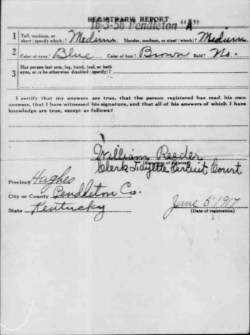 REGISTRAR'S REPORT
16-3-36 Pendleton "A"
1 Tall, medium, or short (specify which)? Medium Slender, medium, or stout (which)? Medium
2 Color of eyes? Blue Color of hair? Brown Bald? No.
3 Has person lost arm, leg, hand, foot, or both eyes, or is he otherwise disabled (specify)?
I certify that my answers are true, that the person registered has read his own answers, that I have witnessed his signature, and that all of his answers of which I have knowledge are true, except as follows:
William Reeder
Clerk Fayette Circuit Court
Precinct Hughes
City or County Pendleton Co.
State Kentucky
June 5 1917
(Date of registration)